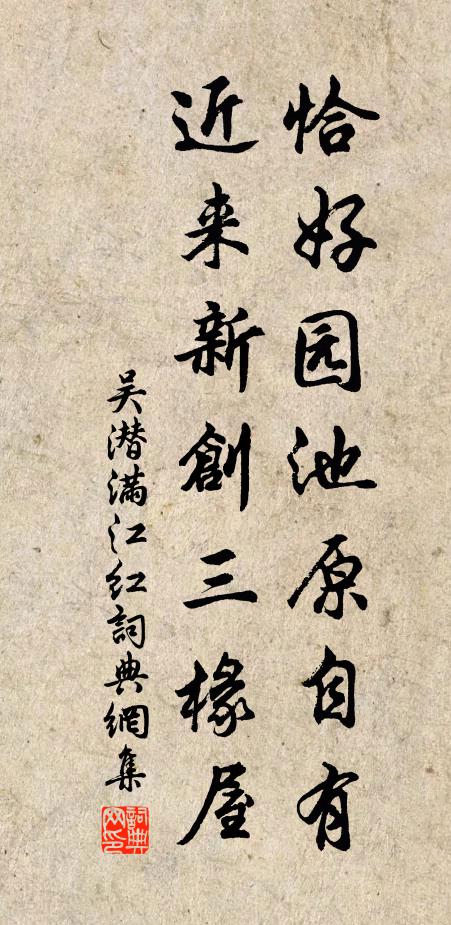 恰好园池原自有
近来新創三椽屋
吴潜满江红詞典網集
詞典網印